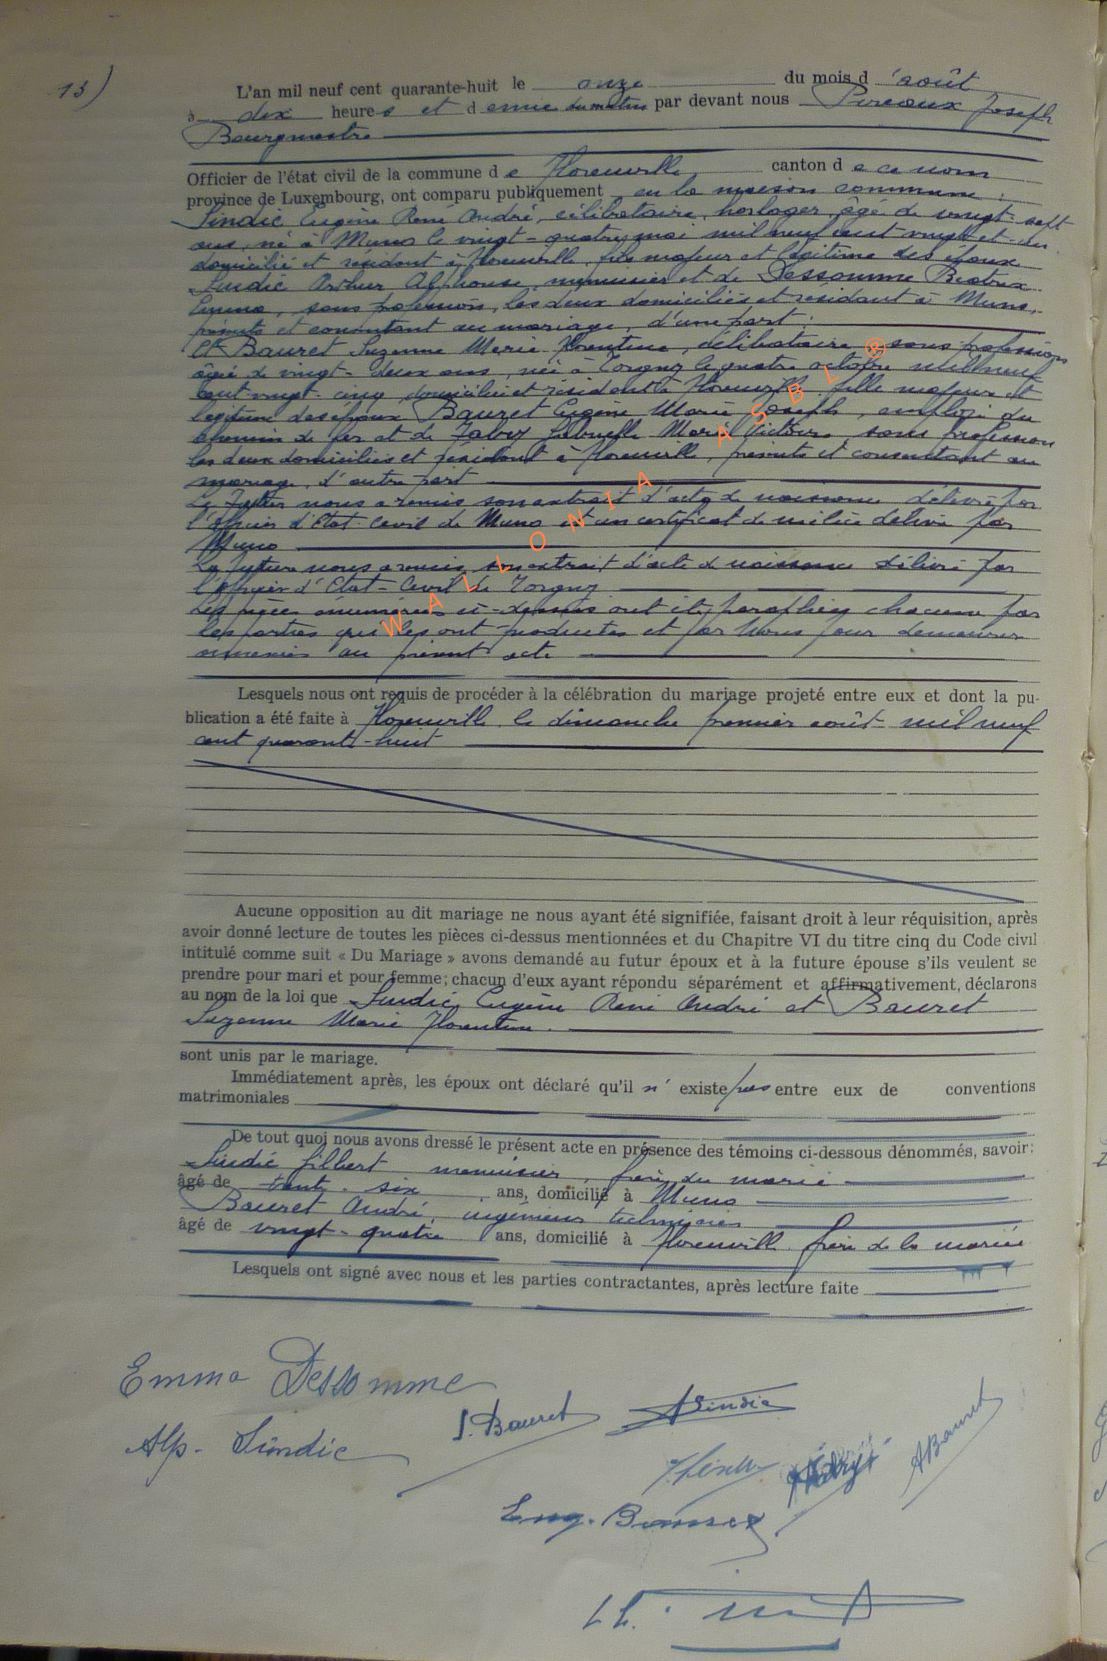 13)
L'an mil neuf cent quarante-huit le onze du mois d'août
à dix heures et demie du matin par devant nous Pireaux Joseph
Bourgmestre
Officier de l'état civil de la commune de Florenville canton de ce nom
province de Luxembourg, ont comparu publiquement en la maison commune :
Sindic Eugène René André, célibataire, horloger, âgé de vingt-sept
ans, né à Muno le vingt-quatre mai mil neuf cent vingt-et-un
domicilié et résidant à Florenville, fils majeur et légitime des époux
Sindic Arthur Alphonse, menuisier et de Dessomme Beatrix
Emma, sans profession, les deux domiciliés et résidant à Muno,
présents et consentant au mariage, d'une part :
Et Bauret Suzanne Marie Florentine, célibataire, sans profession
âgée de vingt-deux ans, née à Torgny le quatre octobre mil neuf
cent vingt-cinq, domiciliée et résidant à Florenville, fille majeure et
légitime des époux Bauret Eugène Marie Joseph, employé du
chemin de fer et de Fabry Marie Victoire, sans profession
les deux domiciliés et résidant à Florenville, présents et consentant au
mariage, d'autre part
Le futur nous a remis son extrait d'acte de naissance délivré par
l'officier d'Etat-Civil de Muno et un certificat de milice délivré par
Muno
La future nous a remis son extrait d'acte de naissance délivré par
l'officier d'Etat-Civil de Torgny
Les pièces énumérées ci-dessus ont été paraphées chacune par
les parties qui les ont produites et par Nous pour demeurer
annexées au présent acte
WALLONIA ASBL ®
Lesquels nous ont requis de procéder à la célébration du mariage projeté entre eux et dont la pu-
blication a été faite à Florenville le dimanche premier août mil neuf
cent quarante-huit
Aucune opposition au dit mariage ne nous ayant été signifiée, faisant droit à leur réquisition, après
avoir donné lecture de toutes les pièces ci-dessus mentionnées et du Chapitre VI du titre cinq du Code civil
intitulé comme suit « Du Mariage » avons demandé au futur époux et à la future épouse s'ils veulent se
prendre pour mari et pour femme; chacun d'eux ayant répondu séparément et affirmativement, déclarons
au nom de la loi que Sindic Eugène René André et Bauret
Suzanne Marie Florentine.
sont unis par le mariage.
Immédiatement après, les époux ont déclaré qu'il n'existe pas entre eux de conventions
matrimoniales
De tout quoi nous avons dressé le présent acte en présence des témoins ci-dessous dénommés, savoir:
Sindic Gilbert menuisier, frère du marié
âgé de trente-six ans, domicilié à Muno
Bauret André, ingénieur technicien
âgé de vingt-quatre ans, domicilié à Florenville frère de la mariée
Lesquels ont signé avec nous et les parties contractantes, après lecture faite
Emma Dessomme
S. Bauret
Sindic
Alp. Sindic
ABauret
Fabry
Eug. Bauret